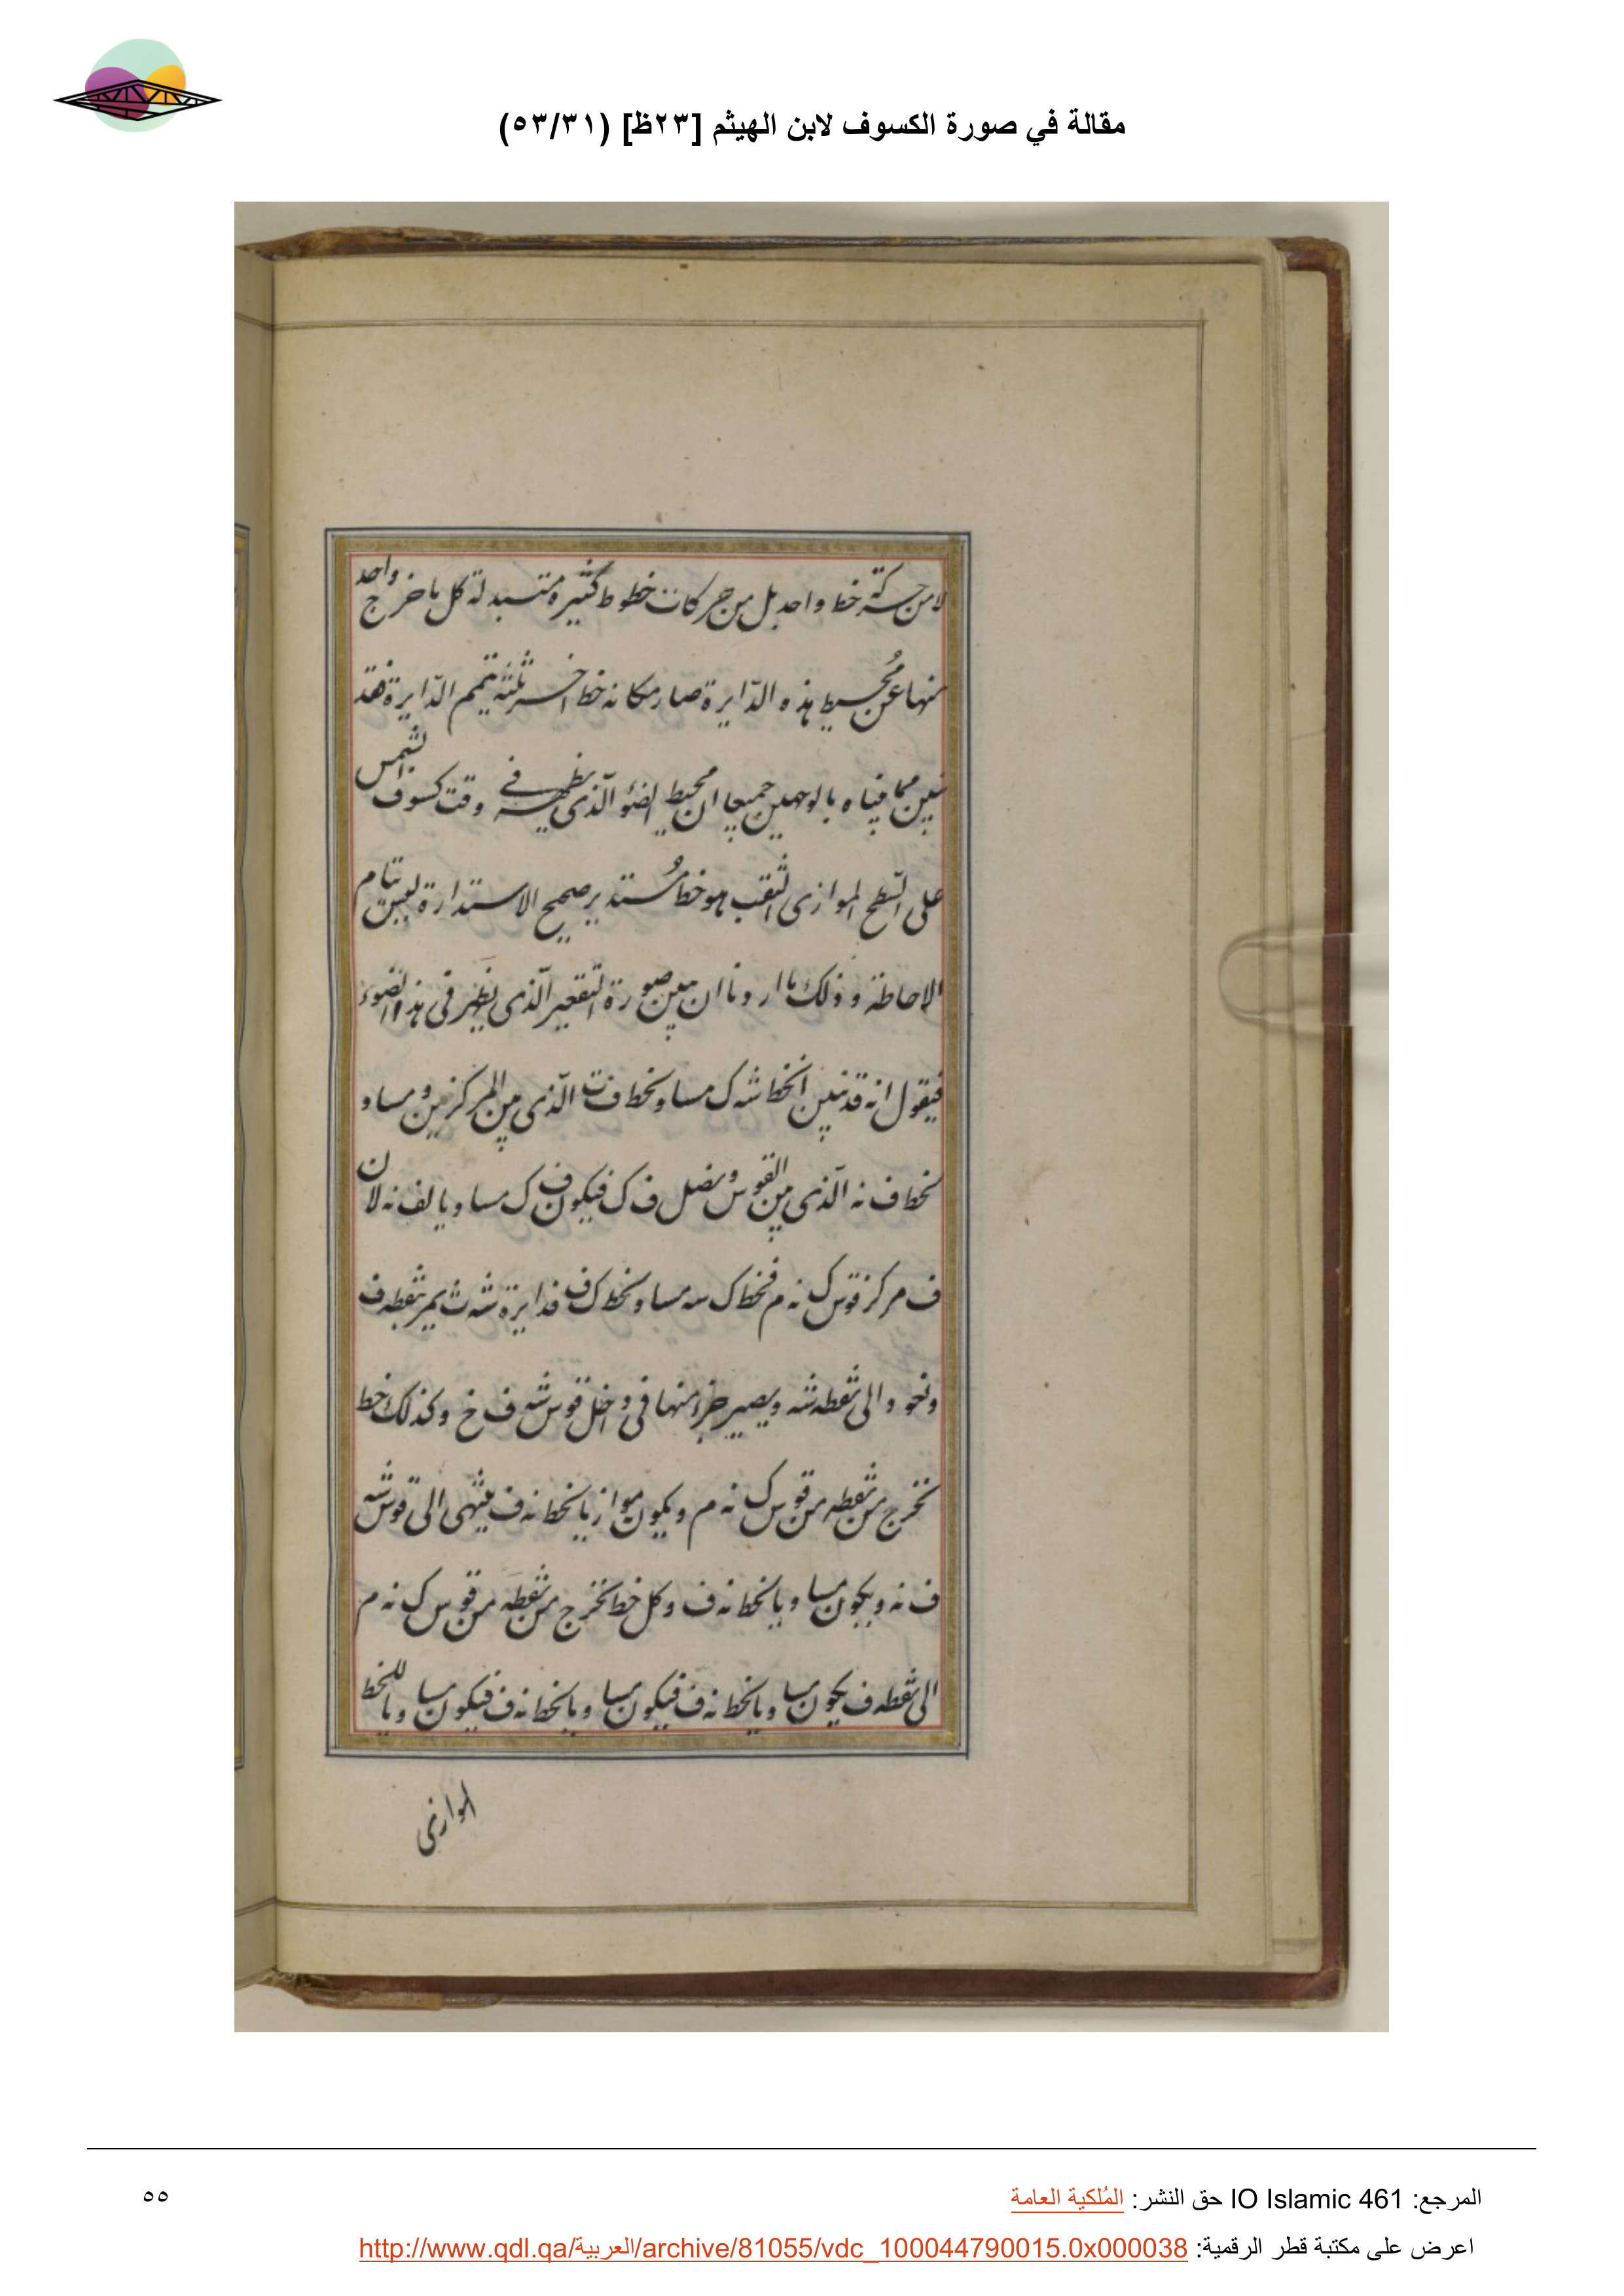 مقالة في صورة الكسوف لابن الهيثم [٢٣ظ] (٥٣/٣١)
لا من حركة خط واحد بل من حركات خطوط كثيرة متبدلة كل ما خرج واحد
منها عن محيط هذه الدّايرة صار مكانه خط اخر ثلثه يتمم الدّايرة فقد
تبين مما بيناه بالوجهين جميعا ان محيط الضوء الّذى يظهر فے وقت كسوف الشمس
على السّطح الموازى الثقب هو خط مُستدير صحيح الاستدارة ليس بتام
الاحاطة و ذلك ما اردنا ان نبين صورة التّقعير الّذى يظهر فى هذا الضوء
فيقول انه قد تبين انخط شه ك مساو لخط ف ت الّذى بين المركزين و مساو
لخط ف نه الّذى بين القوس و نصل ف ك فيكون ف ك مساويا لف نه لان
ف مركز قوس ك نه م فخط ك سه مساو لخط ك ف فدايرة شه ث يمر بنقطه ف
ونحو و الى نقطه شه و يصير جزا منها فى داخل قوس شه ف خ وكذلك خط
نخرج من نقطه من قوس ك نه م و يكون موازيا لخط نه ف ينتهى الى قوس شه
ف نه و يكون مساويا لخط نه ف وكل خط نخرج من نقطه من قوس ك نه م
الى نقطه ف يكون مساويا لخط نه ف فيكون مساويا لخط نه ف فيكون مساويا للخط
الموازى
المرجع: IO Islamic 461 حق النشر: المُلكية العامة
٥٥
اعرض على مكتبة قطر الرقمية: http://www.qdl.qa/العربية/archive/81055/vdc_100044790015.0x000038